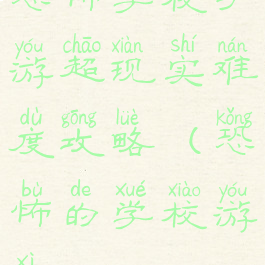 yóu chāo xiàn shí nán
游超现实难
dù gōng lüè kǒng
度攻略（恐
bù de xué xiào yóu
怖的学校游
xì